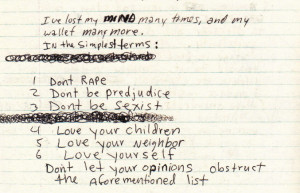 I've lost my MIND many times, and my
wallet many more.
IN the Simplest terms:
1 Dont RAPE
2 Dont be predjudice
3 Dont be Sexist
4 Love your children
5 Love your Neighbor
6 Love yourself
Dont let your opinions obstruct
the aforementioned list